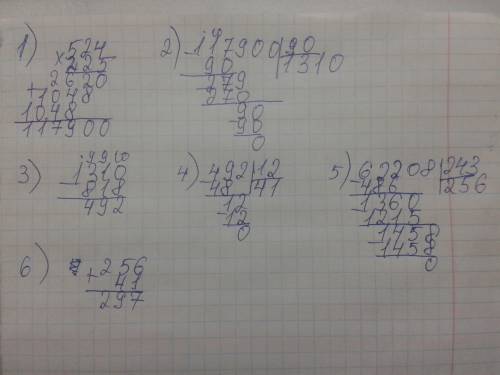 1) 524
× 225
2620
+ 1048
1048
117900
2) - 117900 | 90
90 | 1310
- 279
270
- 90
90
0
3) 9 9 10
- 1310
818
492
4) - 492 | 12
48 | 41
- 12
12
0
5) - 62208 | 243
486 | 256
- 1360
1215
- 1458
1458
0
6) + 256
41
297